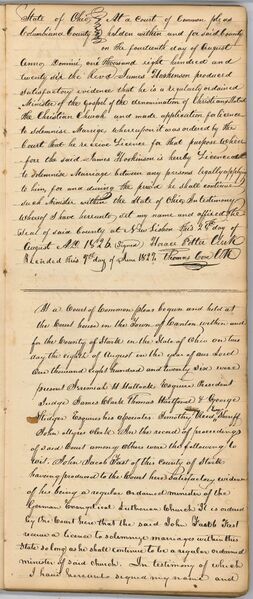 State of Ohio, At a Court of Common pleas
Columbiana County holden within and for said County
on the fourteenth day of August
Anno Domini, one thousand eight hundred and
twenty six the Revd James Hoskinson produced
satisfactory evidence that he is a regularly ordained
Minister of the Gospel of the denomination of Christians stiled
the Christian Church and made application for licence
to solemnise Marriage whereupon it was ordered by the
Court that he receive License for that purpose Where
fore the said James Hoskinson is hereby Licensed
to solemnise Marriage between any persons legally applying
to him, for and during the period he shall continue
such Minister within the State of Ohio, In testimony
whereof I have hereunto set my name and affixed the
seal of said County at New Lisbon this 28th day of
August A.D. 1826 (Signed) Horace Potter Clerk
Recorded this 9th day of June 1827 Thomas
At a Court of Common pleas begun and held at
the Court house in the Town of Canton within and
for the County of Stark in the State of Ohio on
day the eighth of August in the year of our Lord
One thousand Eight hundred and twenty Six were
present Jeremiah H Hallock Esquire President
Judge James Clark Thomas & George
Esquires his associates Timothy Reed Sheriff
John Myers Clerk. In the record of proceedings
of said Court among others were the following to
wit. John Jacob Fast of this County of Stark
having produced to the Court here satisfactory evidence
of his being a regular ordained minister of the
German Evangelical Lutheran Church It is ordered
by the Court here that the said John Jacob Fast
receive a license to solemnize marriages within this
State so long as he shall continue to be a regular ordained
minister of said church. In testimony of which
I have hereunto signed my name and